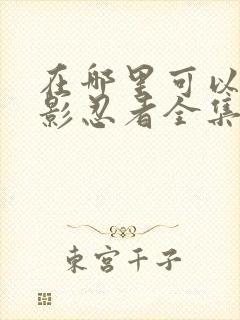 在哪里可以
影忍者全集
东宫千子